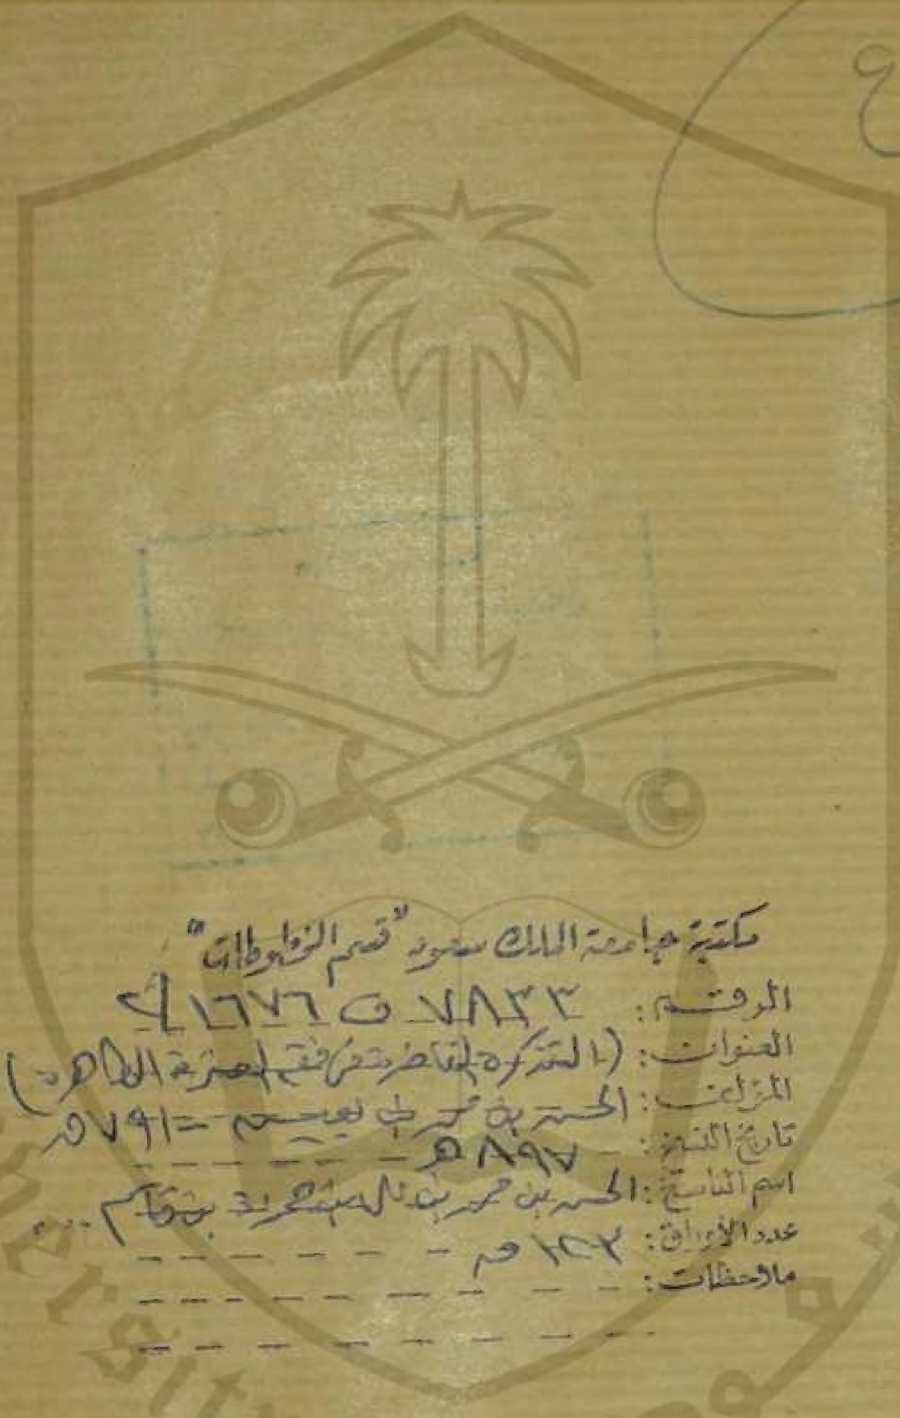 ع
مكتبة جامعة الملك سعود "قسم المخطوطات"
الرقم: ٧٨٣٣ ف ١٦٧٦
العنوان: (التذكرة الفاخرة في فقه العترة الطاهرة)
المؤلف: الحسن بن محمد - ٧٩١ هـ
تاريخ النسخ: ٨٩٧ هـ
اسم الناسخ: الحسن بن محمد بن بن قاسم ...
عدد الأوراق: ق
ملاحظات: